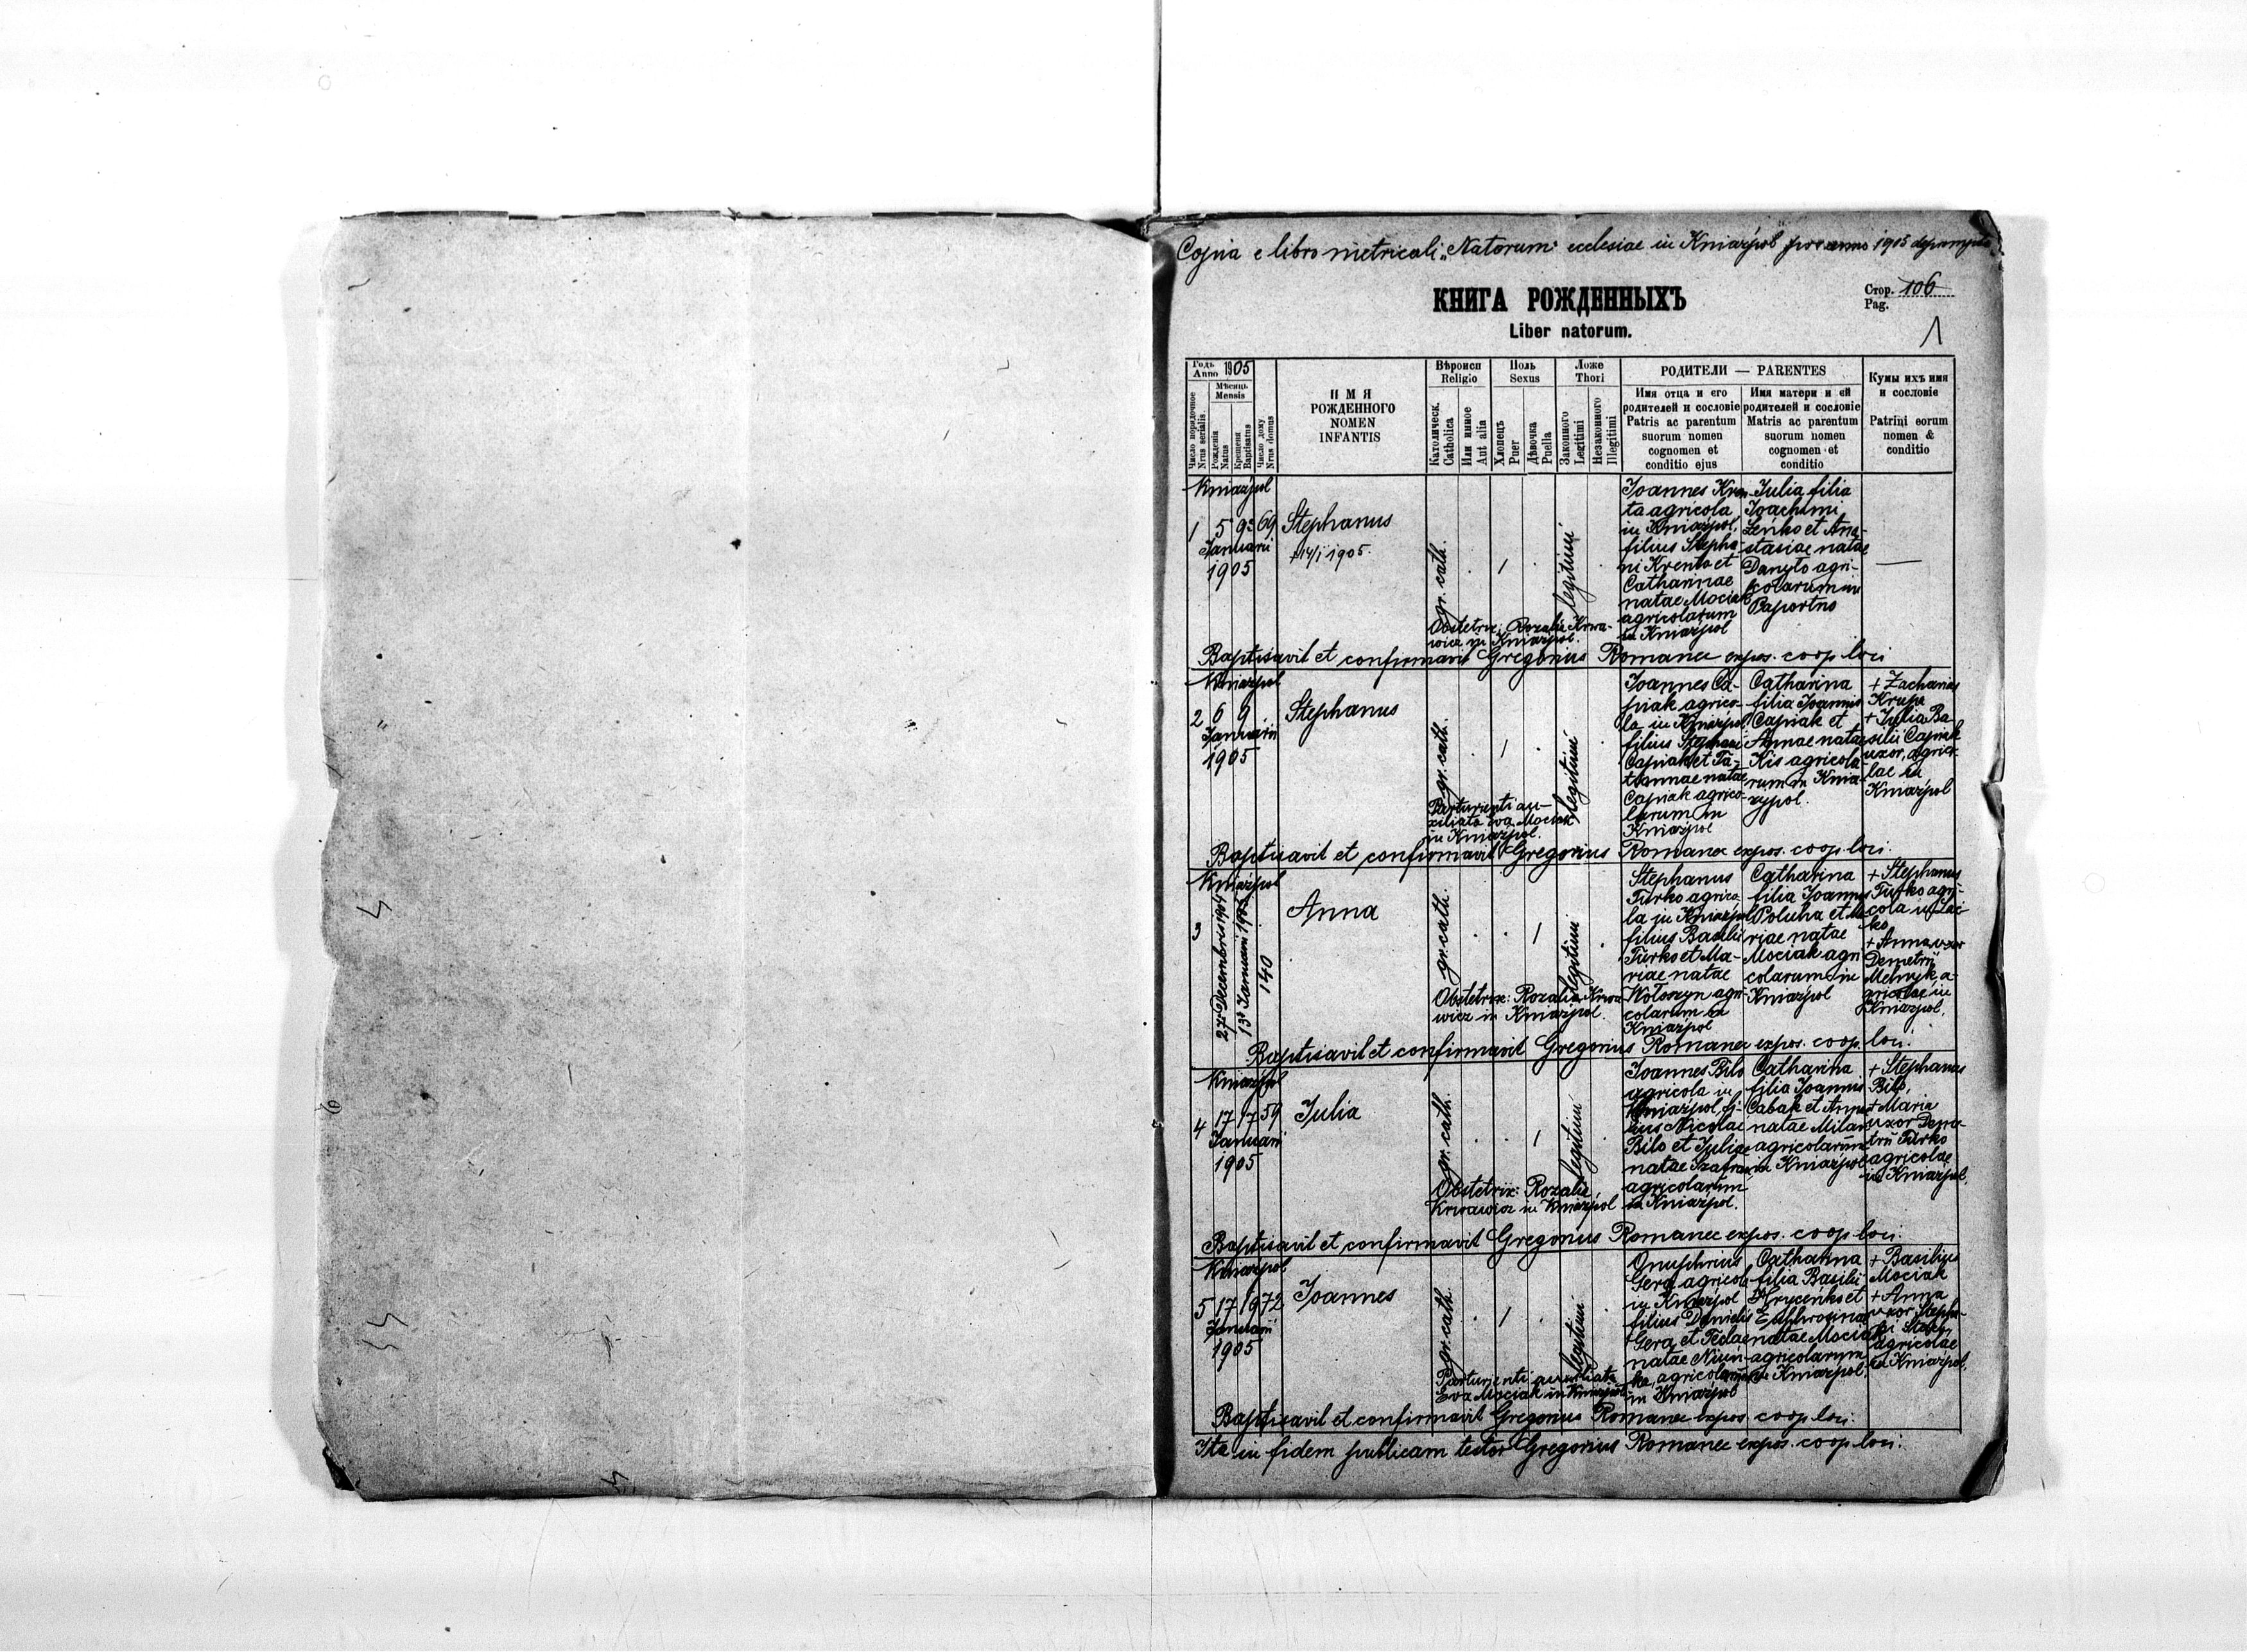 Copia e libro metricali „Natorum” ecclesiae in Kniażpol pro anno 1905 deprompta
КНИГА РОЖДЕННЫХЪ
Liber natorum.
Стор. 106
Pag.
1
Годъ 1905
Anno
Мѣсяць
Mensis
Число порядочное
Nrus serialis
Рожденія
Natus
Крещенія
Baptisatus
Число дому
Nrus domus
ИМЯ
РОЖДЕННОГО
NOMEN
INFANTIS
Вѣроисп
Religio
Католическ.
Catholica
Или инное
Aut alia
Полъ
Sexus
Хлопецъ
Puer
Дѣвочка
Puella
Ложе
Thori
Законного
Legitimi
Незаконного
Illegitimi
РОДИТЕЛИ — PARENTES
Имя отца и его
родителей и сословіе
Patris ac parentum
suorum nomen
cognomen et
conditio ejus
Имя матери и ей
родителей и сословіе
Matris ac parentum
suorum nomen
cognomen et
conditio
Кумы ихъ имя
и сословіе
Patrini eorum
nomen &
conditio
Kniażpol
1 5 9 69
Januarii
1905
Stephanus
+ 14/1 1905.
gr. cath.
legitimi
Joannes Kren-
ta agricola
in Kniażpol,
filius Stepha-
ni Krenta et
Catharinae
natae Mociak
agricolarum
in Kniażpol
Julia filia
Joachimi
Zeńko et Ana-
stasiae natae
Danyło agri-
colarum in
Paportno
Obstetrix: Rozalia Krwa-
wicz in Kniażpol.
Baptisavit et confirmavit Gregorius Romanec expos. coop. loci
Kniażpol
2 6 9
Januarii
1905
Stephanus
gr. cath.
legitimi
Joannes Ca-
piak agrico-
la in Kniażpol
filius Stephani
Capiak et Ta-
tiannae natae
Capiak agrico-
larum in
Kniażpol
Catharina
filia Joannis
Capiak et
Annae natae
Kis agricola-
rum in Knia-
żypol.
+ Zacharias
Krupa
+ Julia Ba-
silii Capiak
uxor, agrico-
lae in
Kniażpol
Parturienti au-
xiliata Eva Mociak
in Kniażpol.
Baptisavit et confirmavit Gregorius Romanec expos. coop. loci.
Kniażpol
3
27 Decembris 1904
13 Januarii 1905
140
Anna
gr. cath.
legitimi
Stephanus
Turko agrico-
la in Kniażpol
filius Basilii
Turko et Ma-
riae natae
Wołoszyn agri-
colarum in
Kniażpol
Catharina
filia Joannis
Poluha et Ma-
riae natae
Mociak agri
colarum in
Kniażpol
+ Stephanus
Turko agri-
cola in
+ Anna uxor
Demetrii
Melnyk a-
gricolae in
Kniażpol.
Obstetrix: Rozalia Krwa
wicz in Kniażpol.
Baptisavit et confirmavit Gregorius Romanec expos. coop. loci.
Kniażpol
4 17 17 59
Januarii
1905
Julia
gr. cath.
legitimi
Joannes Bilo
agricola in
Kniażpol, fi-
lius Nicolai
Bilo et Juliae
natae Szafran
agricolarum
in Kniażpol.
Catharina
filia Joannis
Cabak et Annae
natae Milan
agricolarum
in Kniażpol
+ Stephanus
Bilo,
+ Maria
uxor Deme-
trii Turko
agricolae
in Kniażpol.
Obstetrix: Rozalia
Krwawicz in Kniażpol
Baptisavit et confirmavit Gregorius Romanec expos. coop. loci.
Kniażpol
5 17 19 72
Januarii
1905
Joannes
gr. cath.
legitimi
Onuphrius
Gera agricola
in Kniażpol
filius Danielis
Gera et Teclae
natae
agricolarum
in Kniażpol
Catharina
filia Basilii
Hryceńko et
Euphrosinae
natae Mociak
agricolarum
in Kniażpol.
+ Basilius
Mociak
+ Anna
uxor Stepha-
ni
agricolae
in Kniażpol.
Parturienti auxiliata
Eva Mociak in Kniażpol
Baptisavit et confirmavit Gregorius Romanec expos. coop. loci.
Ita in fidem publicam testor Gregorius Romanec expos. coop. loci.